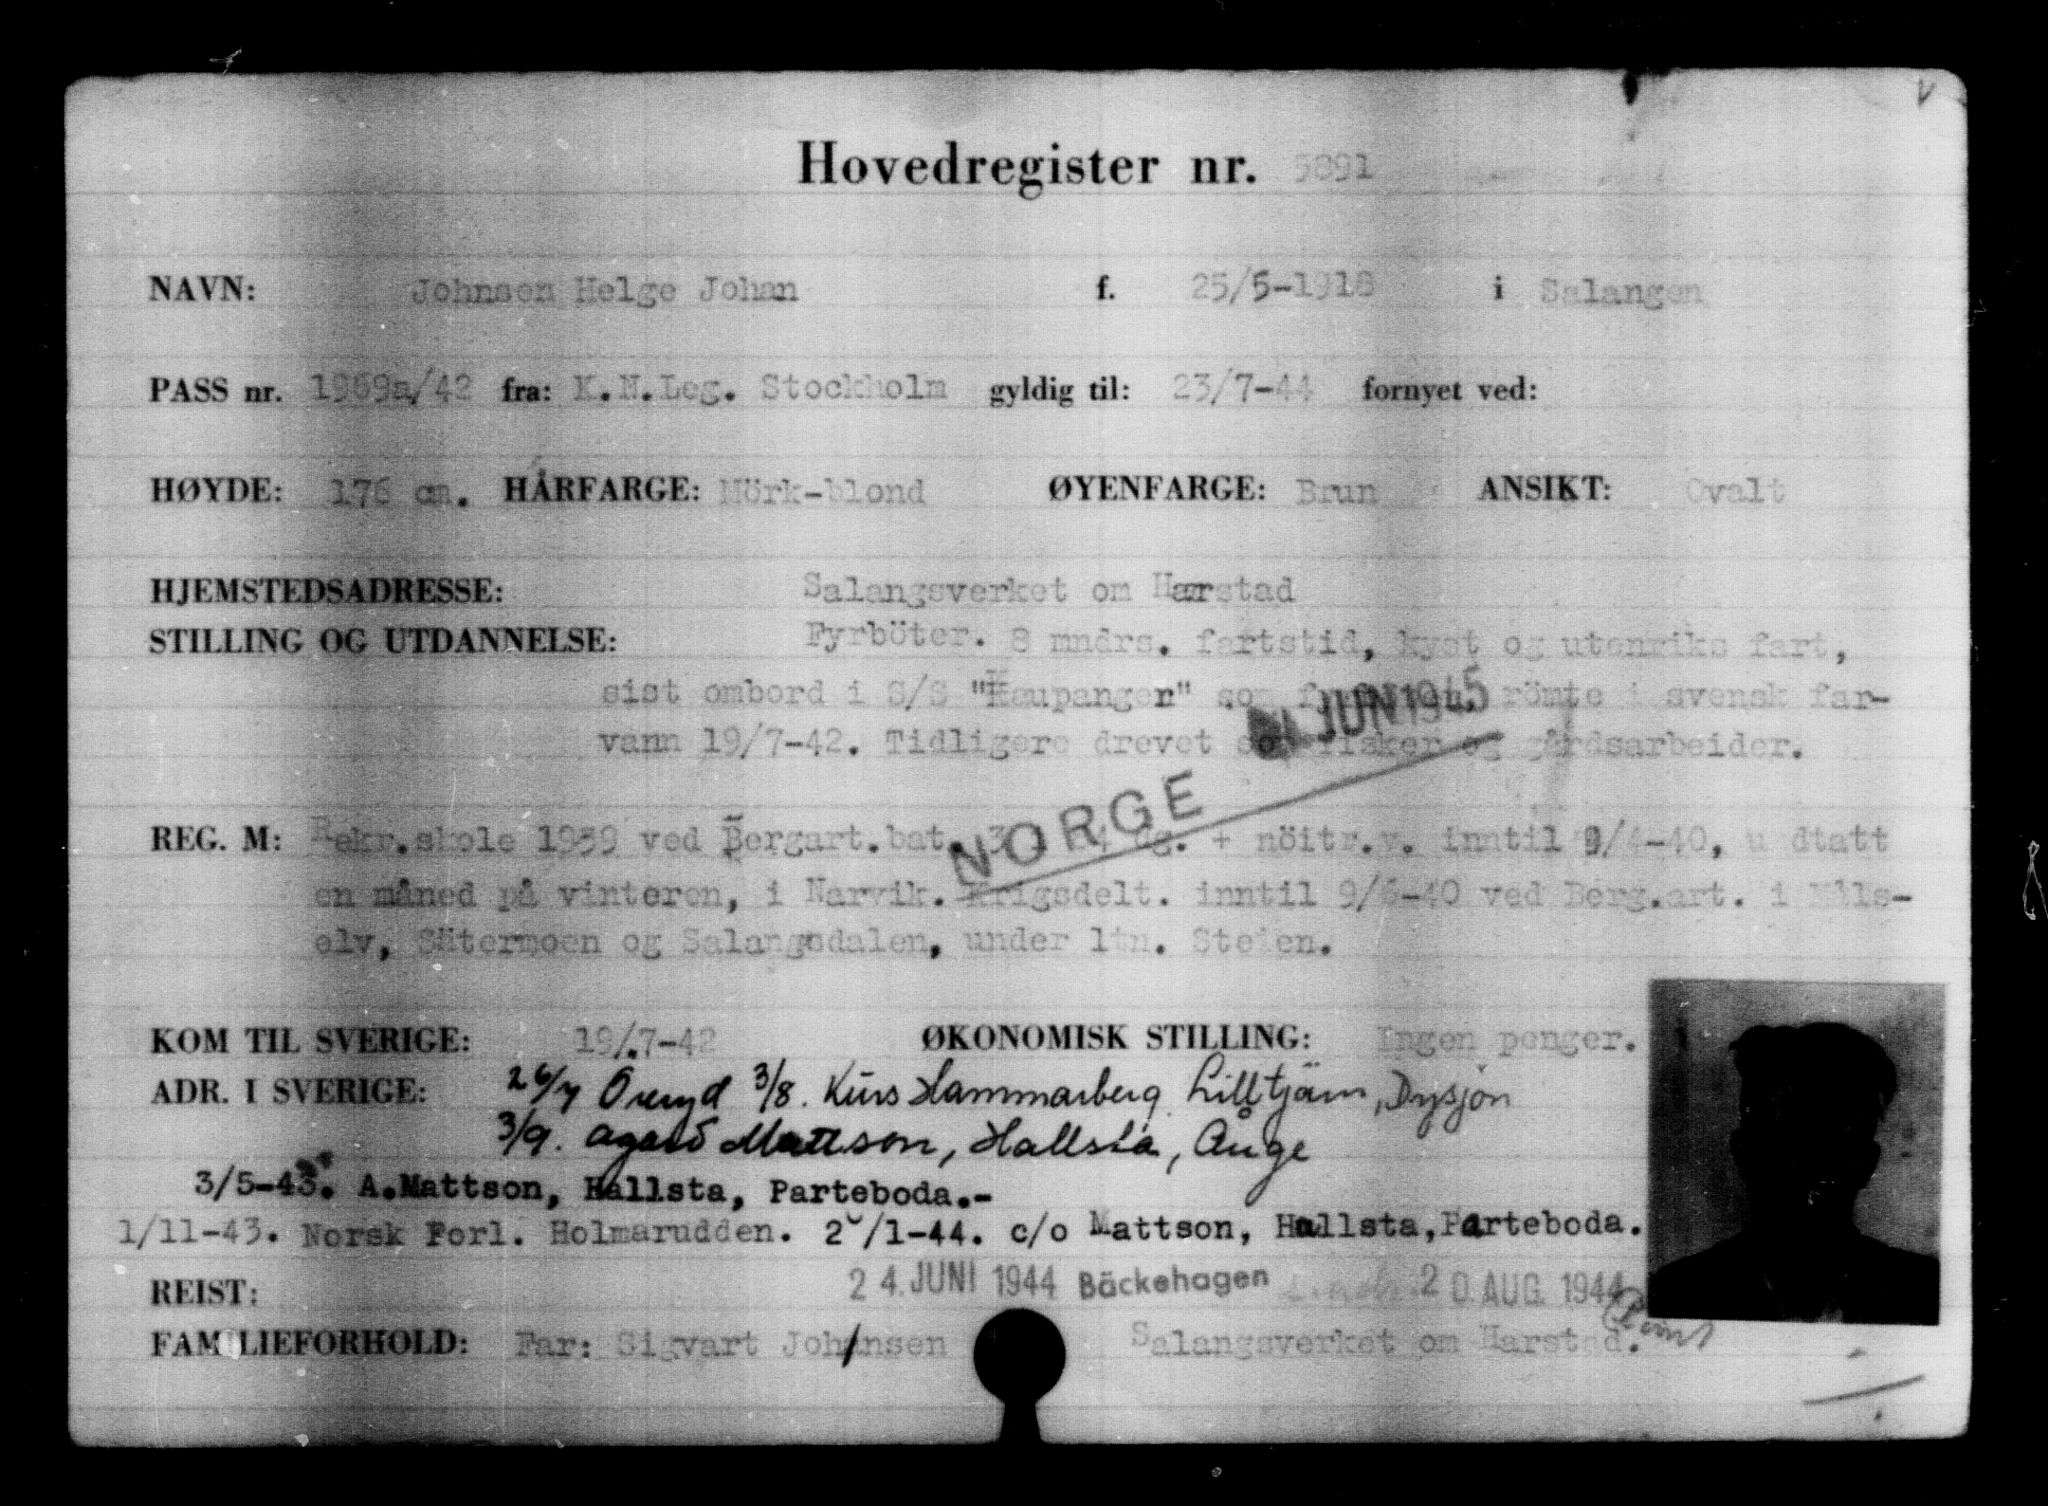 Hovedregister nr. 5891
NAVN: Johnsen Helge Johan f. 25/5-1918 i Salangen
PASS nr. 1969a/42 fra: K.N.Leg. Stockholm gyldig til: 23/7-44 fornyet ved:
HØYDE: 176 cm. HÅRFARGE: Mörk-blond ØYENFARGE: Brun ANSIKT: Ovalt
HJEMSTEDSADRESSE: Salangsverket om Harstad
STILLING OG UTDANNELSE: Fyrböter. 8 mndrs. fartstid, kyst og utenriks fart,
sist ombord i S/S "Kaupanger" som römte i svensk far-
JUNI 1945
vann 19/7-42. Tidligere drevet som fisker og gårdsarbeider.
NORGE
REG. M: Rekr.skole 1939 ved Bergart.bat. dg. + nöitr.v. inntil 9/4-40, undtatt
en måned på vinteren, i Narvik. Krigsdelt. inntil 9/6-40 ved Berg.art. i Måls-
elv, Sätermoen og Salangsdalen, under ltn. Steien.
KOM TIL SVERIGE: 19/7-42 ØKONOMISK STILLING: Ingen penger.
ADR. I SVERIGE: 26/7 Öreryd 3/8. Kurs Hammarberg Lilltjärn, Dysjön
3/9. Mattson, Hallsta, Ånge
3/5-43. A.Mattson, Hallsta, Parteboda.-
1/11-43. Norsk Forl. Holmarudden. /1-44. c/o Mattson, Hallsta, Parteboda.
REIST: 24. JUNI 1944 Bäckehagen 20 AUG. 1944
FAMILIEFORHOLD: Far: Sigvart Johansen Salangsverket om Harstad.